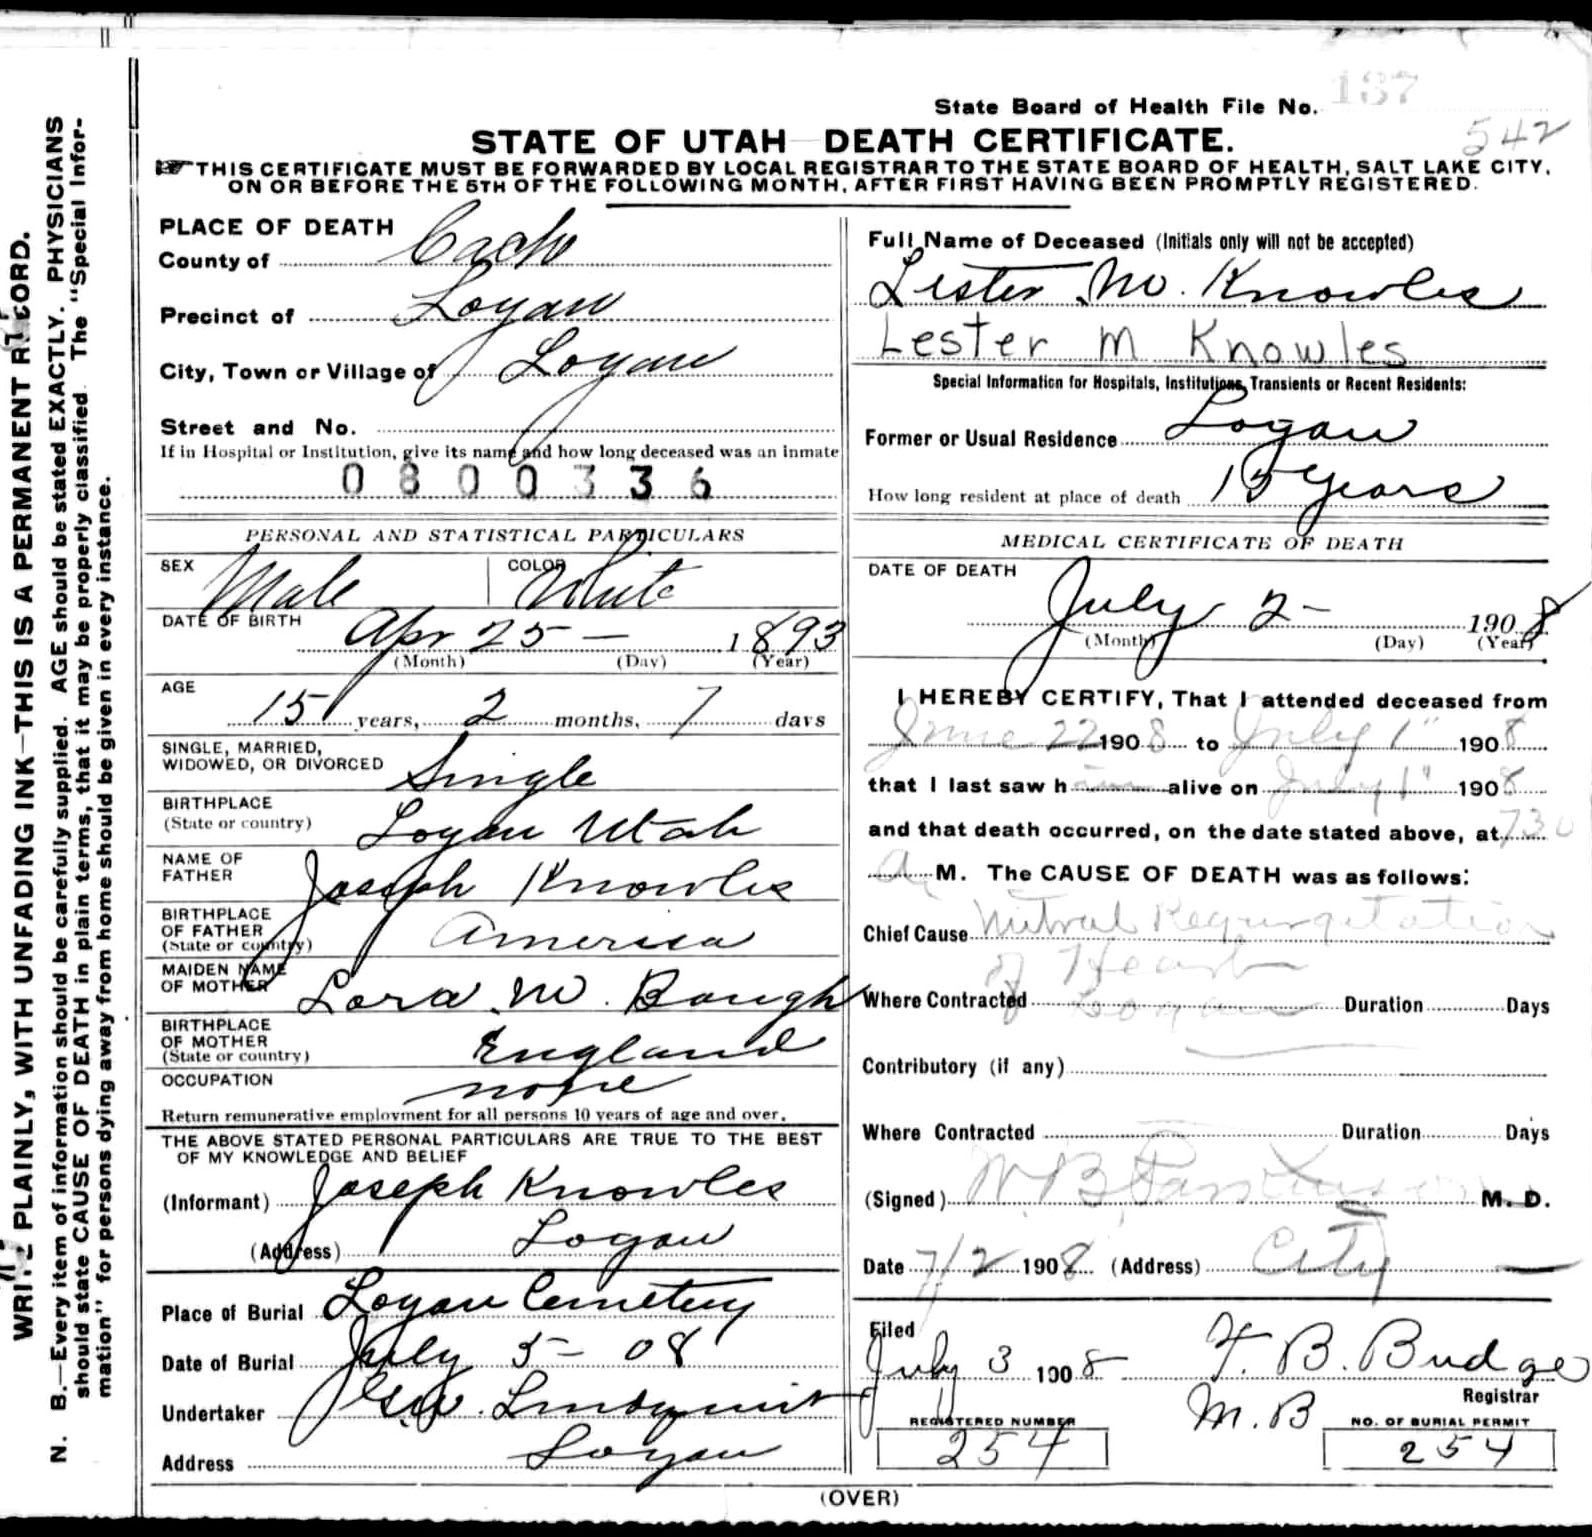 State Board of Health File No. 137
542
STATE OF UTAH—DEATH CERTIFICATE.
THIS CERTIFICATE MUST BE FORWARDED BY LOCAL REGISTRAR TO THE STATE BOARD OF HEALTH, SALT LAKE CITY,
ON OR BEFORE THE 5TH OF THE FOLLOWING MONTH, AFTER FIRST HAVING BEEN PROMPTLY REGISTERED.
WRITE PLAINLY, WITH UNFADING INK—THIS IS A PERMANENT RECORD.
N. B.—Every item of information should be carefully supplied. AGE should be stated EXACTLY. PHYSICIANS
should state CAUSE OF DEATH in plain terms, that it may be properly classified. The "Special Infor-
mation" for persons dying away from home should be given in every instance.
PLACE OF DEATH
County of Cache
Precinct of Logan
City, Town or Village of Logan
Street and No.
If in Hospital or Institution, give its name and how long deceased was an inmate
0800336
PERSONAL AND STATISTICAL PARTICULARS
SEX Male COLOR White
DATE OF BIRTH
Apr 25 — 1893
(Month) (Day) (Year)
AGE
15 years, 2 months, 7 days
SINGLE, MARRIED,
WIDOWED, OR DIVORCED Single
BIRTHPLACE
(State or country) Logan Utah
NAME OF
FATHER Joseph Knowles
BIRTHPLACE
OF FATHER
(State or country) America
MAIDEN NAME
OF MOTHER Lora M. Baugh
BIRTHPLACE
OF MOTHER
(State or country) England
OCCUPATION none
Return remunerative employment for all persons 10 years of age and over.
THE ABOVE STATED PERSONAL PARTICULARS ARE TRUE TO THE BEST
OF MY KNOWLEDGE AND BELIEF
(Informant) Joseph Knowles
(Address) Logan
Place of Burial Logan Cemetery
Date of Burial July 5 - 08
Undertaker Geo. W. Lindquist
Address Logan
Full Name of Deceased (Initials only will not be accepted)
Lester M. Knowles
Lester M Knowles
Special Information for Hospitals, Institutions, Transients or Recent Residents:
Former or Usual Residence Logan
How long resident at place of death 15 years
MEDICAL CERTIFICATE OF DEATH
DATE OF DEATH
July 2 - 1908
(Month) (Day) (Year)
I HEREBY CERTIFY, That I attended deceased from
June 22 1908 to July 1" 1908
that I last saw him alive on July 1" 1908
and that death occurred, on the date stated above, at 730
A. M. The CAUSE OF DEATH was as follows:
Chief Cause Mitral Regurgitation
of Heart
Where Contracted Logan Duration Days
Contributory (if any)
Where Contracted Duration Days
(Signed) W B Parkinson M. D.
Date 7/2 1908 (Address) City
Filed
July 3 1908 F. B. Budge
Registrar
M.B
REGISTERED NUMBER
254
NO. OF BURIAL PERMIT
254
(OVER)